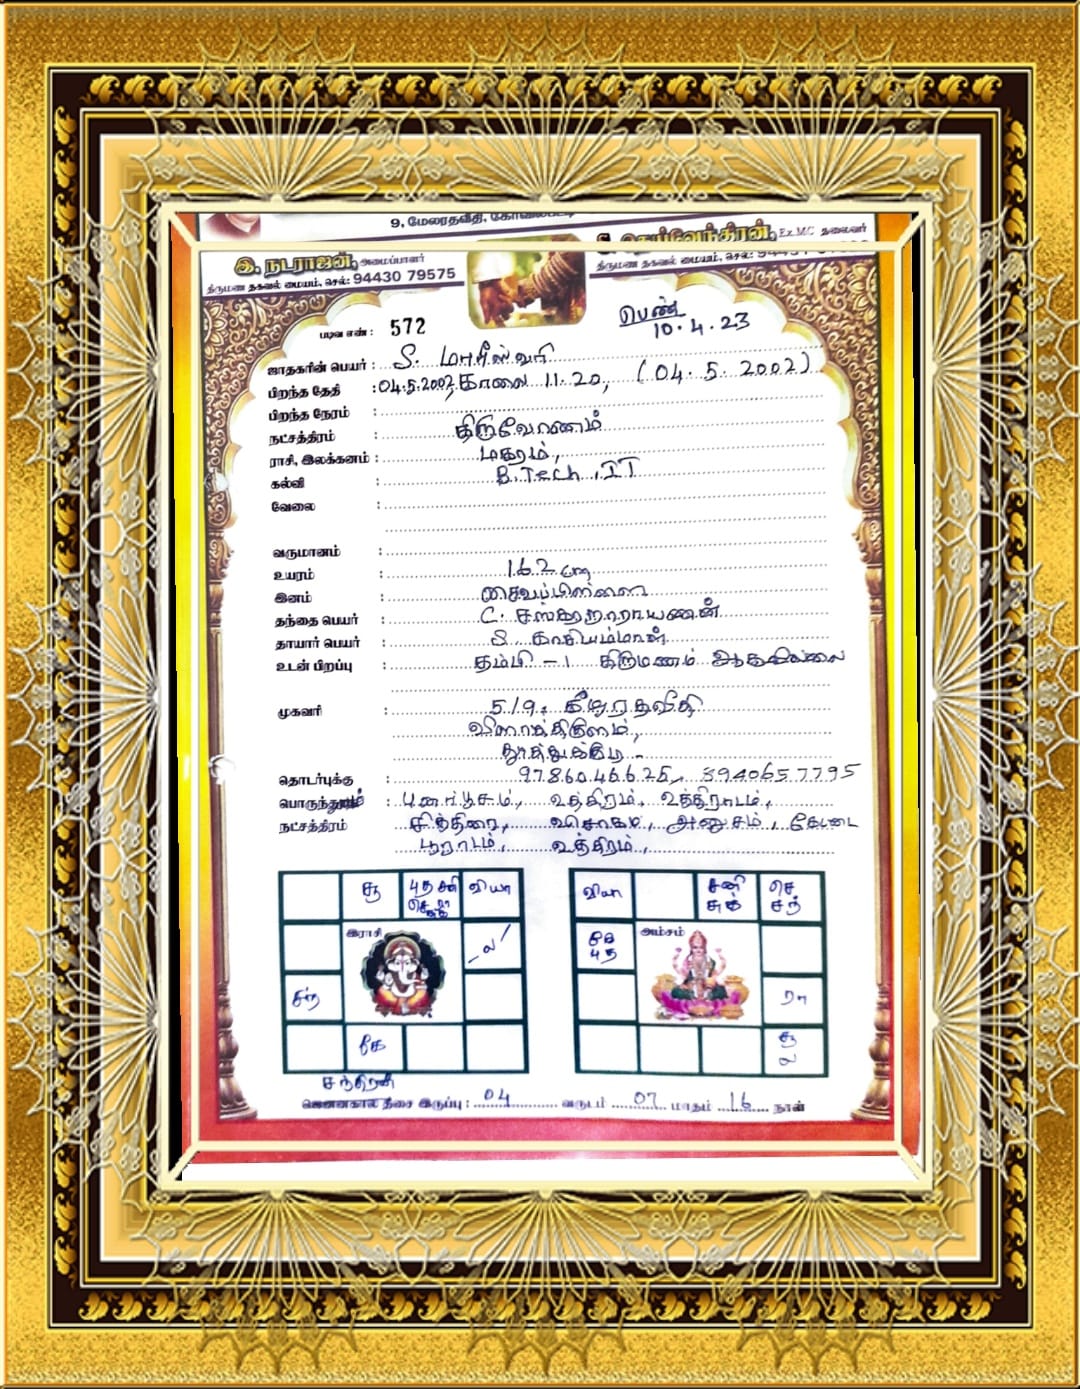 9, மேலரதவீதி, கோவில்பட்டி
இ. நடராஜன், அமைப்பாளர்
திருமண தகவல் மையம், செல்: 94430 79575
தெய்வேந்திரன், Ex.MC தலைவர்
திருமண தகவல் மையம், செல்:
படிவ எண் : 572
பெண்
10.4.23
ஜாதகரின் பெயர் : S. மாரீஸ்வரி
பிறந்த தேதி : 04.5.2002, காலை 11.20, (04.5.2002)
பிறந்த நேரம் :
நட்சத்திரம் : திருவோணம்
ராசி, இலக்கனம் : மகரம்,
கல்வி : B.Tech, IT
வேலை :
வருமானம் :
உயரம் : 162 cm
இனம் : சைவப்பிள்ளை
தந்தை பெயர் : C. சங்கரநாராயணன்
தாயார் பெயர் : S. காசியம்மாள்
உடன் பிறப்பு : தம்பி - 1 திருமணம் ஆகவில்லை
முகவரி : 5/9, கீழரதவீதி
விளாத்திகுளம்,
தூத்துக்குடி -
தொடர்புக்கு : 9786046625, 8940657795
பொருந்தும் : புனர்பூசம், உத்திரம், உத்திராடம்,
நட்சத்திரம் சித்திரை, விசாகம், அனுசம், கேட்டை
பூராடம், உத்திரம்,
சூ புத சனி வியா
செ ரா சுக்
இராசி
ல/
சந்
கே
வியா சனி செ
சுக் சந்
கே புத
அம்சம்
ரா
சூ
ல
சந்திரன்
ஜெனனகால திசை இருப்பு : 04 வருடம் 07 மாதம் 16 நாள்